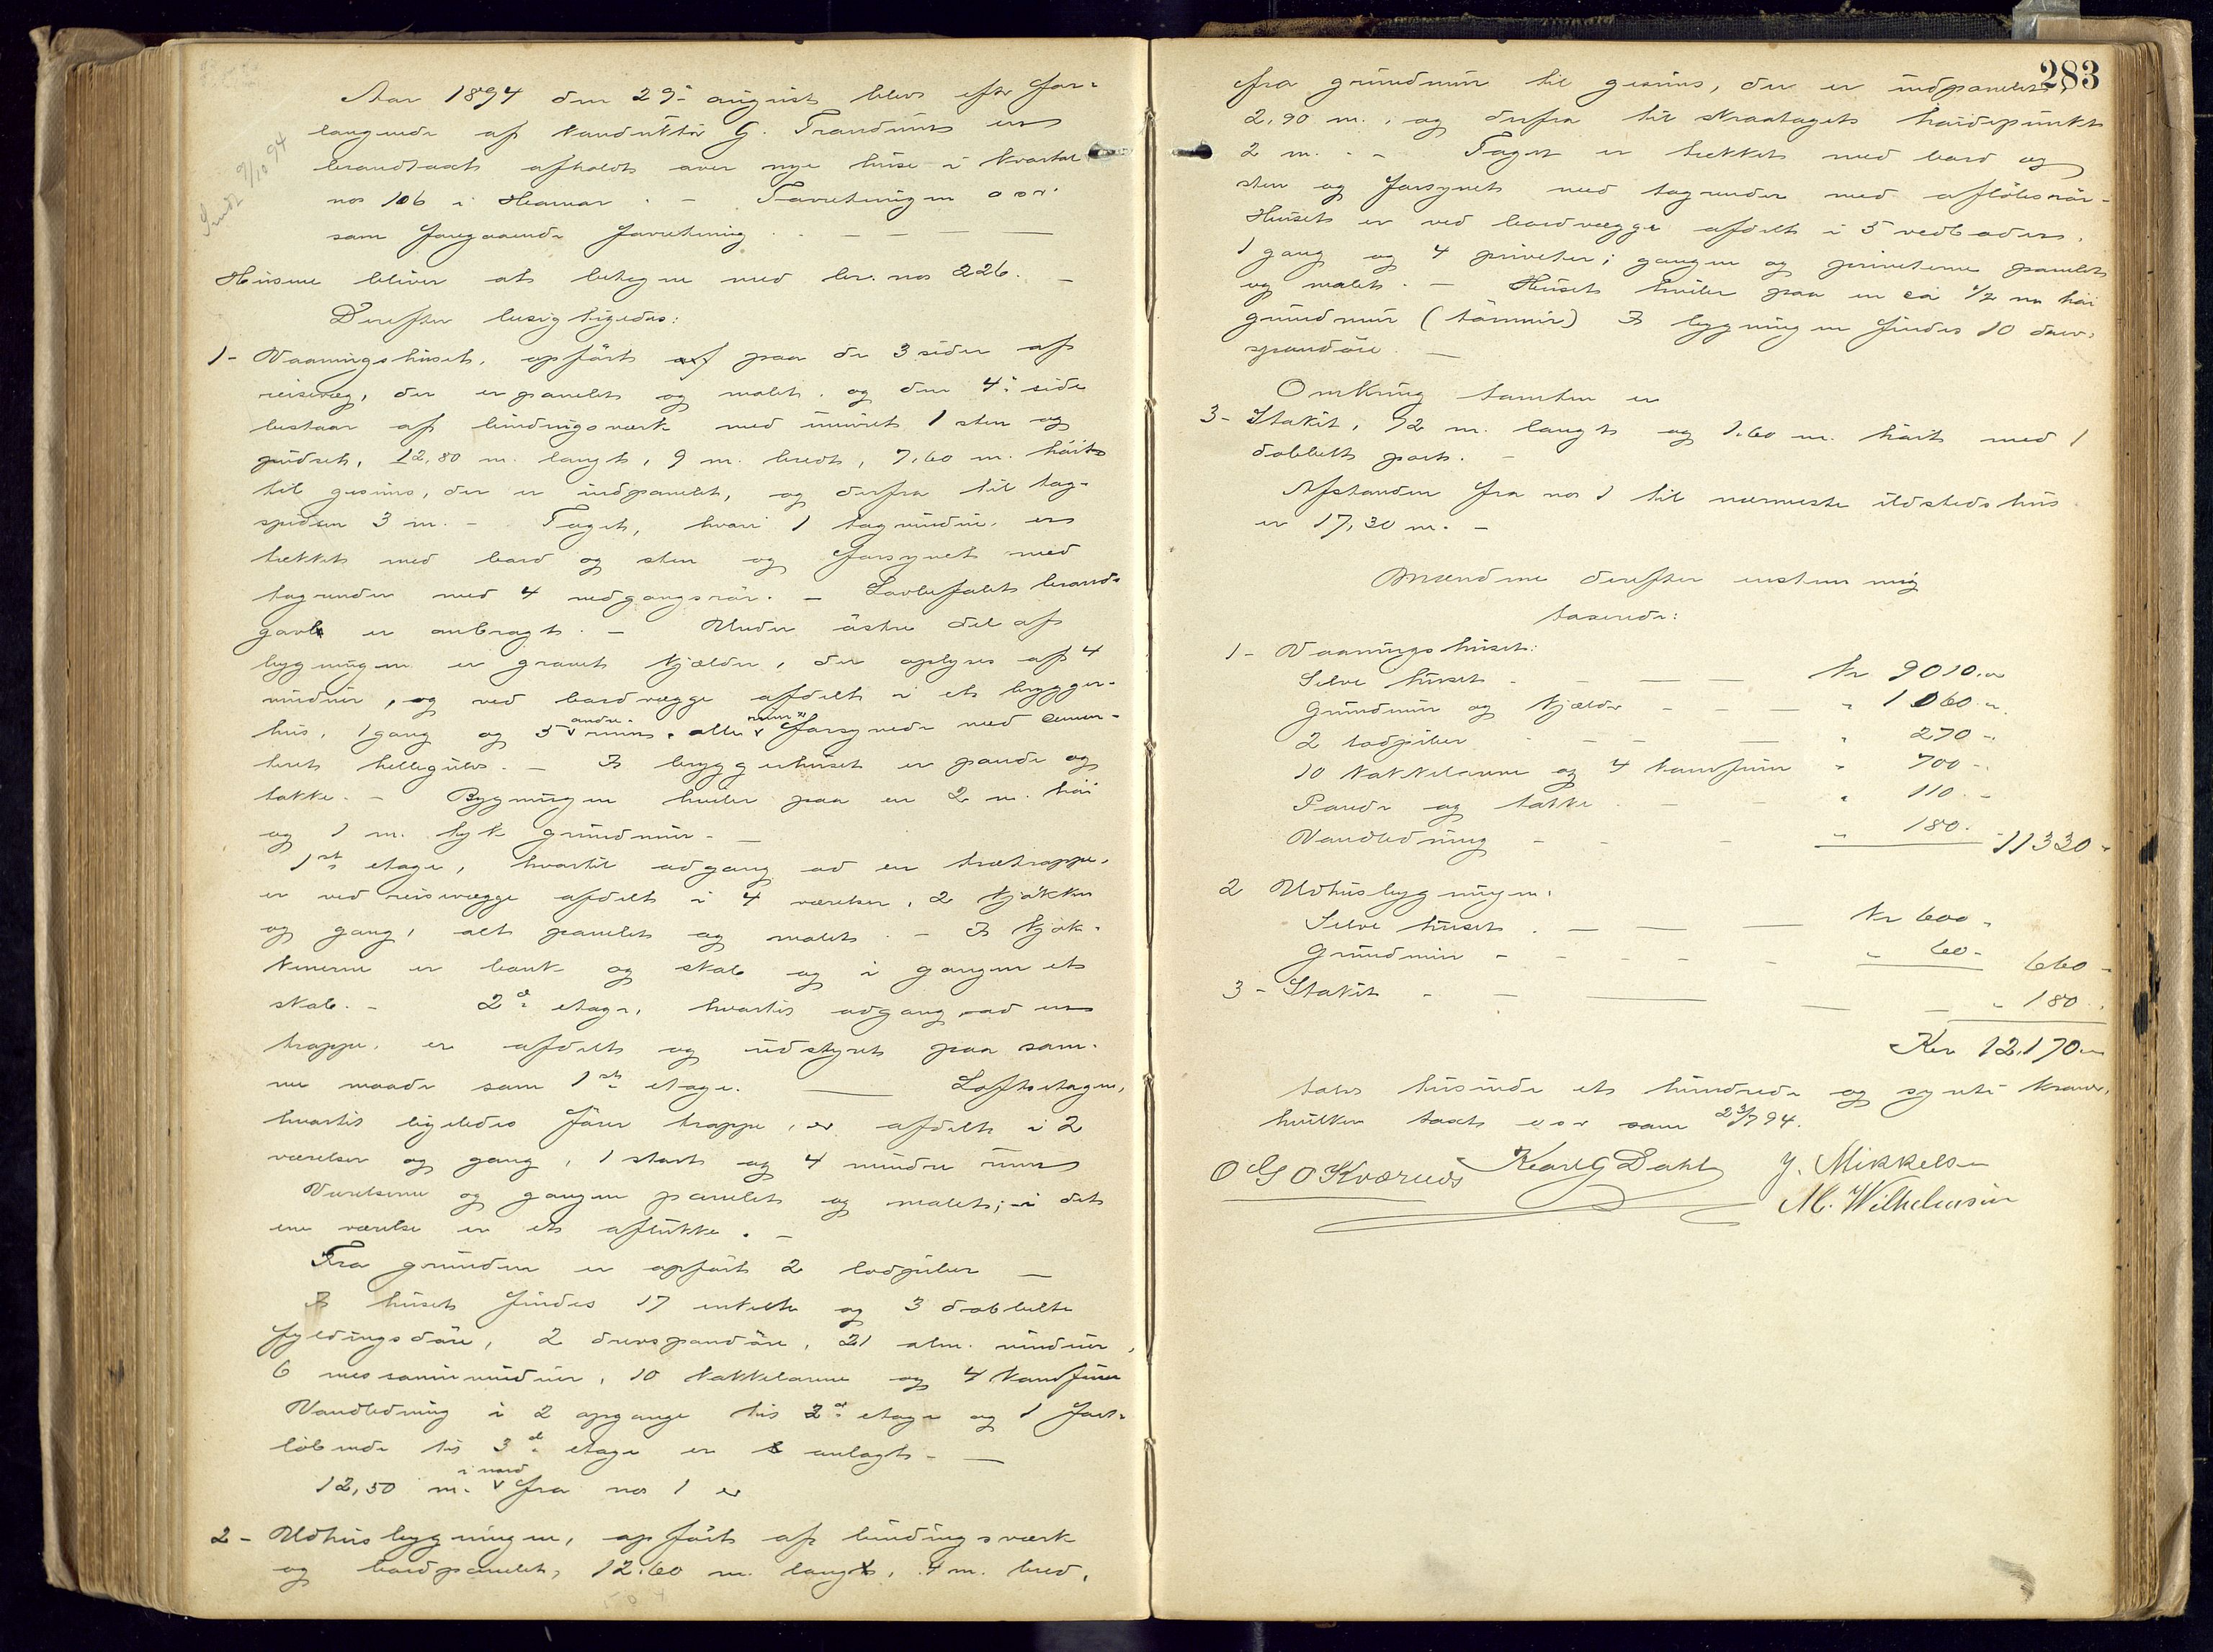 Aar 1894 den 29de august blev efter for-
langende af konduktör G. Trandum en
brandtaxt afholdt over nye huse i kvartal
no 106 i Hamar. – Forretningen o s v.
som foregaaende forretning. – – – –
Sendt 9/10 94
Husene bliver at betegne med br. no 226. –
Derefter besigtigedes:
1 - Vaaningshuset, opført af paa de 3 sider af
reisværg, der er panelet og malet, og den 4de side
bestaar af bindingsværk med muret 1 sten og
pudset, 12,80 m. langt, 9 m. bredt, 7,60 m. höit
til gesims, der er indpanelet, og derfra til tag-
spidsen 3 m. – Taget, hvori 1 tagvindu, er
tækket med bord og sten og forsynet med
tagrender med 4 nedgangsrör. – Lovbefalet brand-
gavl er anbragt. – Under östre del af
bygningen er gravet kjælder, der oplyses af 4
vinduer, og ved bordvægge afdelt i et brygger-
hus, 1 gang og 5 andre rum, alle rum forsynede med cemen-
teret hellegulv. – I bryggerhuset er pande og
takke. – Bygningen hviler paa en 2 m. höi
og 1 m. tyk grundmur. –
1ste etage, hvortil adgang ad en trætrappe,
er ved reisvægge afdelt i 4 værelser, 2 kjökken
og gang, alt panelet og malet. – I kjök-
kenerne er bænk og skab og i gangen et
skab. – 2de etage, hvortil adgang ad en
trappe, er afdelt og udstyret paa sam-
me maade som 1ste etage. — Loftsetagen,
hvortil ligeledes förer trappe, er afdelt i 2
værelser og gang, 1 stort og 4 mindre rum
Værelserne og gangen panelet og malet; i det
ene værelse er et aflukke. –
Fra grunden er opfört 2 lodpiber –
I huset findes 17 enkelte og 3 dobbelte
fyldingsdöre, 2 drevspandöre, 21 alm. vinduer,
6 messaninvinduer, 10 kakkelovne og 4 komfurer
Vandledning i 2 opgange til 2den etage og 1 fort-
löbende til 3de etage er anlagt. –
12,50 m. i nord fra no 1 er
2 - Udhusbygningen, opfört af bindingsværk
og bordpanelet, 12,60 m. lang, 4 m. bred,
283
fra grundmur til gesims, der er indpanelet,
2,90 m., og derfra til skraatagets höidepunkt
2 m. – Taget er tækket med bord og
sten og forsynet med tagrender med aflöbsrör –
Huset er ved bordvægge afdelt i 5 vedboder,
1 gang og 4 priveter; gangen og priveterne panelet
og malet. – Huset hviler paa en ca 1/2 m höi
grundmur (törmur) I bygningen findes 10 drev-
spandöre. –
Omkring tomten er
3 - Stakit, 92 m. langt og 1,60 m. höit med 1
dobbelt port. –
Afstanden fra no 1 til nærmeste ildstedshus
er 17,30 m. –
Mændene derefter enstemmig
taxerede:
1 - Vaaningshuset:
Selve huset – – – – Kr 9010.
Grundmur og kjælder – – – " 1060.
2 lodpiber – – – " 270 –
10 kakkelovne og 4 komfurer " 700 –
Pande og takke – – " 110 –
Vandledning – – – " 180. – 11330 –
2 Udhusbygningen:
Selve huset – – – – Kr 600 –
Grundmur – – – – " 60 – 660 –
3 - Stakit – – – – – " 180.
Kr 12,170
tolv tusinde et hundrede og sytti kroner,
hvilken taxt o s v som 23/7 94.
O G O Kværnes Karl G Dahl J. Mikkelsen
M. Wilhelmsen